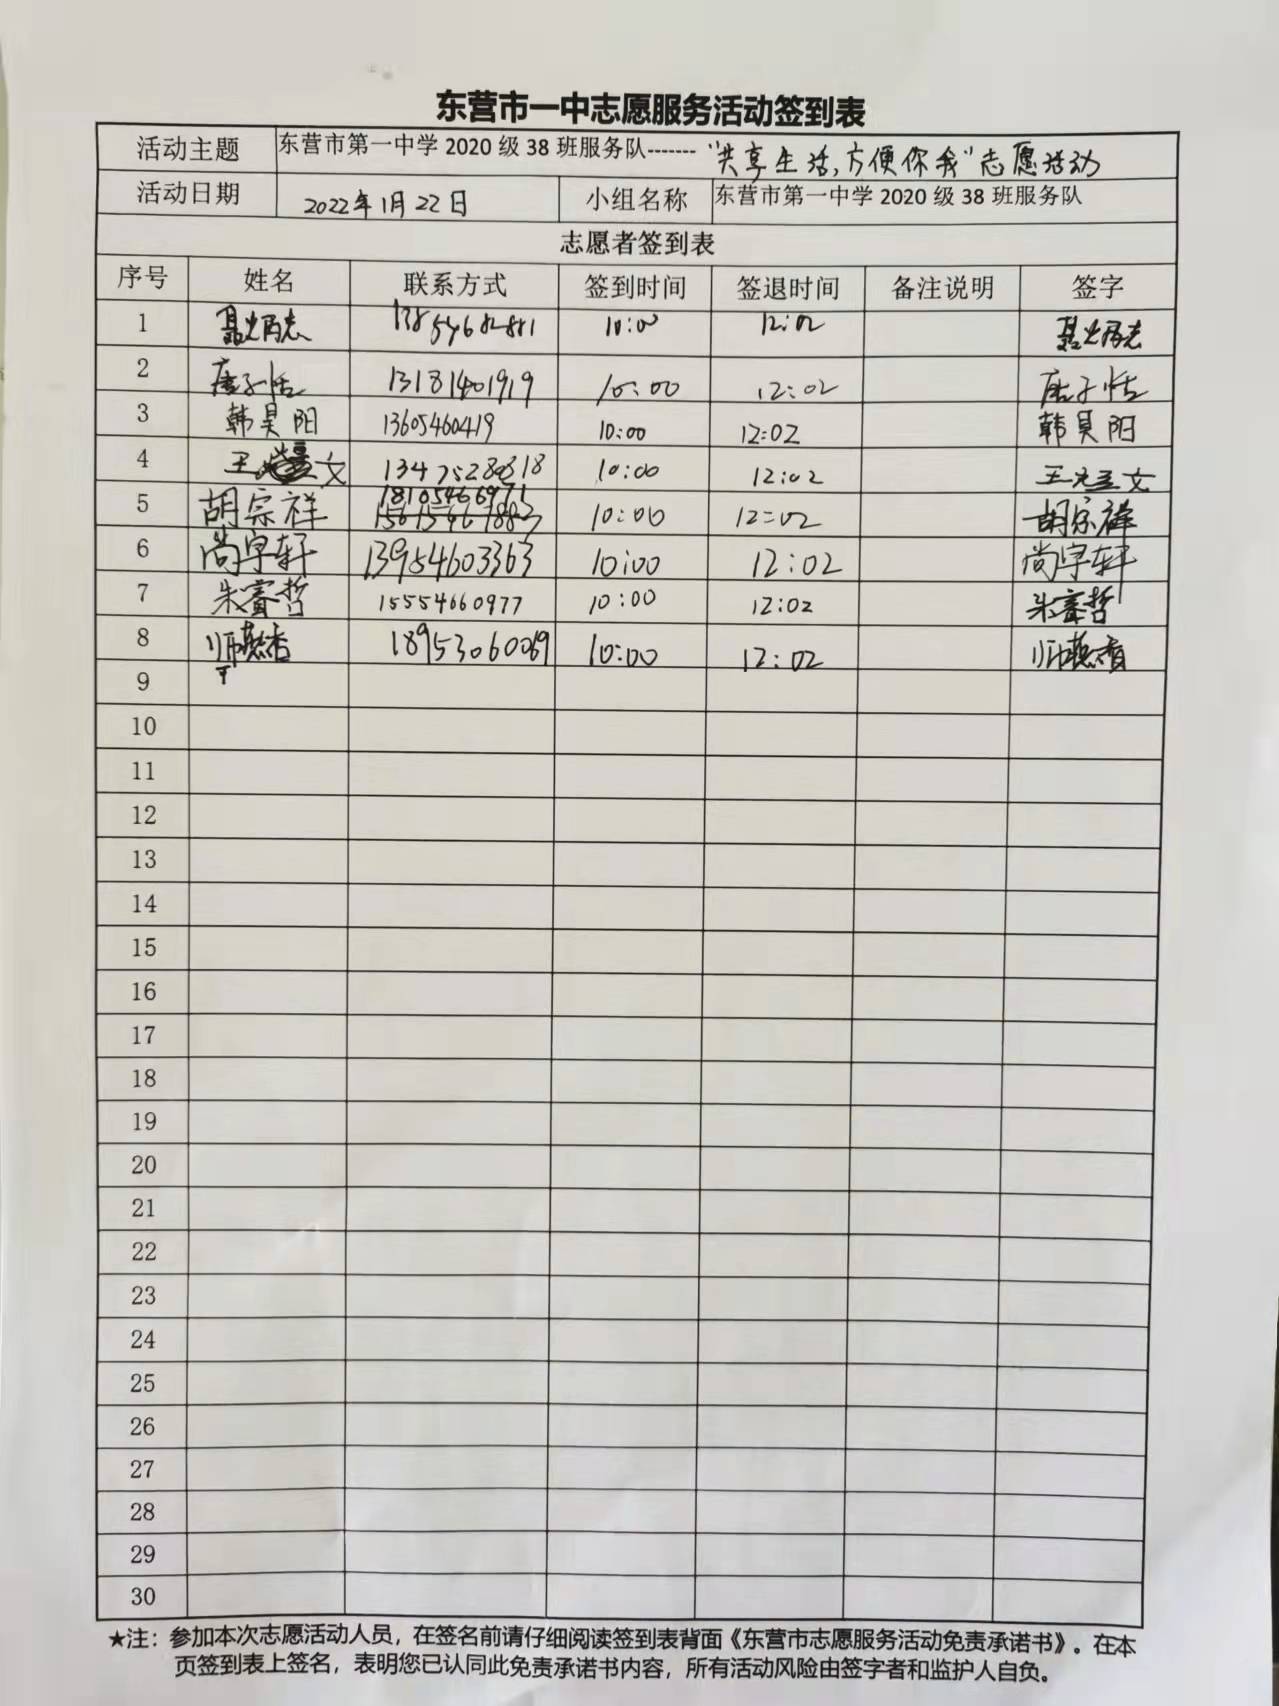 东营市一中志愿服务活动签到表
活动主题 东营市第一中学 2020 级 38 班服务队------- "共享生活,方便你我"志愿活动
活动日期 2022年1月22日 小组名称 东营市第一中学 2020 级 38 班服务队
志愿者签到表
序号 姓名 联系方式 签到时间 签退时间 备注说明 签字
1 10:00 12:02
2 唐子恬 13181401919 10:00 12:02 唐子恬
3 韩昊阳 13605460419 10:00 12:02 韩昊阳
4 王 文 10:00 12:02 王 文
5 胡宗祥 10:00 12:02 胡宗祥
6 尚宇轩 13954603363 10:00 12:02 尚宇轩
7 朱睿哲 15554660977 10:00 12:02 朱睿哲
8 师燕香 10:00 12:02 师燕香
9
10
11
12
13
14
15
16
17
18
19
20
21
22
23
24
25
26
27
28
29
30
★注：参加本次志愿活动人员，在签名前请仔细阅读签到表背面《东营市志愿服务活动免责承诺书》。在本
页签到表上签名，表明您已认同此免责承诺书内容，所有活动风险由签字者和监护人自负。